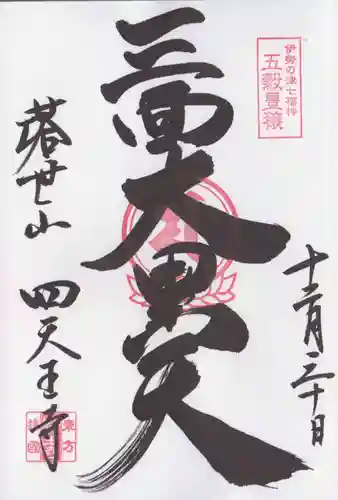 伊勢の津七福神
五穀豊穣
十二月三十日
三面大黒天
塔世山
四天王寺